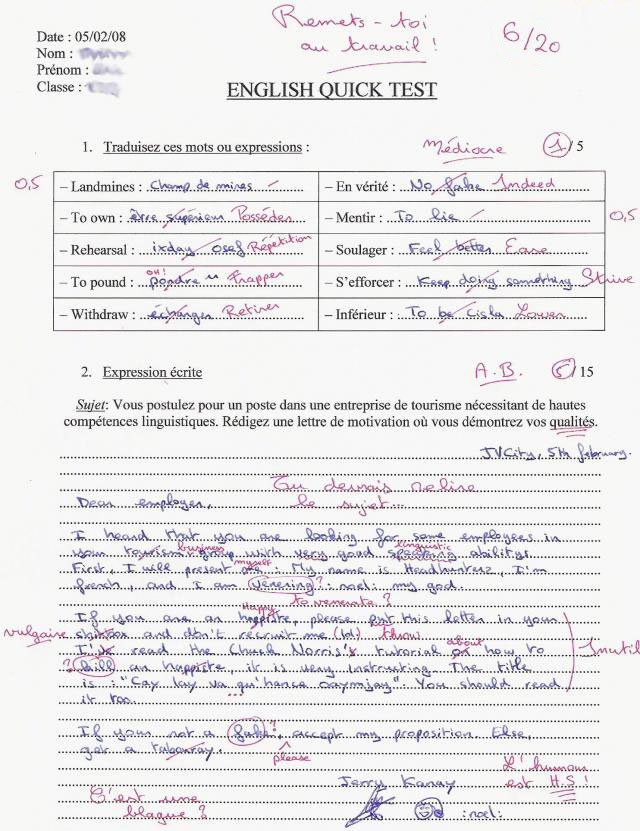 Remets-toi
au travail !
6/20
Date : 05/02/08
Nom :
Prénom :
Classe :
ENGLISH QUICK TEST
1. Traduisez ces mots ou expressions : Médiocre 1/5
0,5 – Landmines : Champ de mines – En vérité : No fake Indeed
– To own : être supérieur Posséder – Mentir : To lie 0,5
– Rehearsal : ixday osef Répétition – Soulager : Feel better Ease
– To pound : pondre un Frapper OH! – S'efforcer : Keep doing something Strive
– Withdraw : échanger Retirer – Inférieur : To be Cisla Lower
2. Expression écrite A.B. 5/15
Sujet: Vous postulez pour un poste dans une entreprise de tourisme nécessitant de hautes
compétences linguistiques. Rédigez une lettre de motivation où vous démontrez vos qualités.
JVCity, 5th february.
Tu devrais relire
Dear employer, le sujet...
I heard that you are looking for some employees in
business linguistic
your tourism group with very good speaking abilitys.
myself
First, I will present me : My name is HeadHunterz, I'm
french, and I am venering ? :noel: my god.
to venerate ?
Happy
If you are an happiste, please put this letter in your
vulgaire shitbox and don't recruit me (lol) throw
about
I've read the Chuck Norris's tutorial on how to Inutil
? kill an happiste, it is very instructing. The title
is : "Cay lay va qu'hance oaymjay". You should read
...
it too.
If your not a fake ?, accept my proposition. Else,
please
get a tabouray.
Jerry Kanay
L'humour
est H.S !
C'est une
blague ?
:noel: